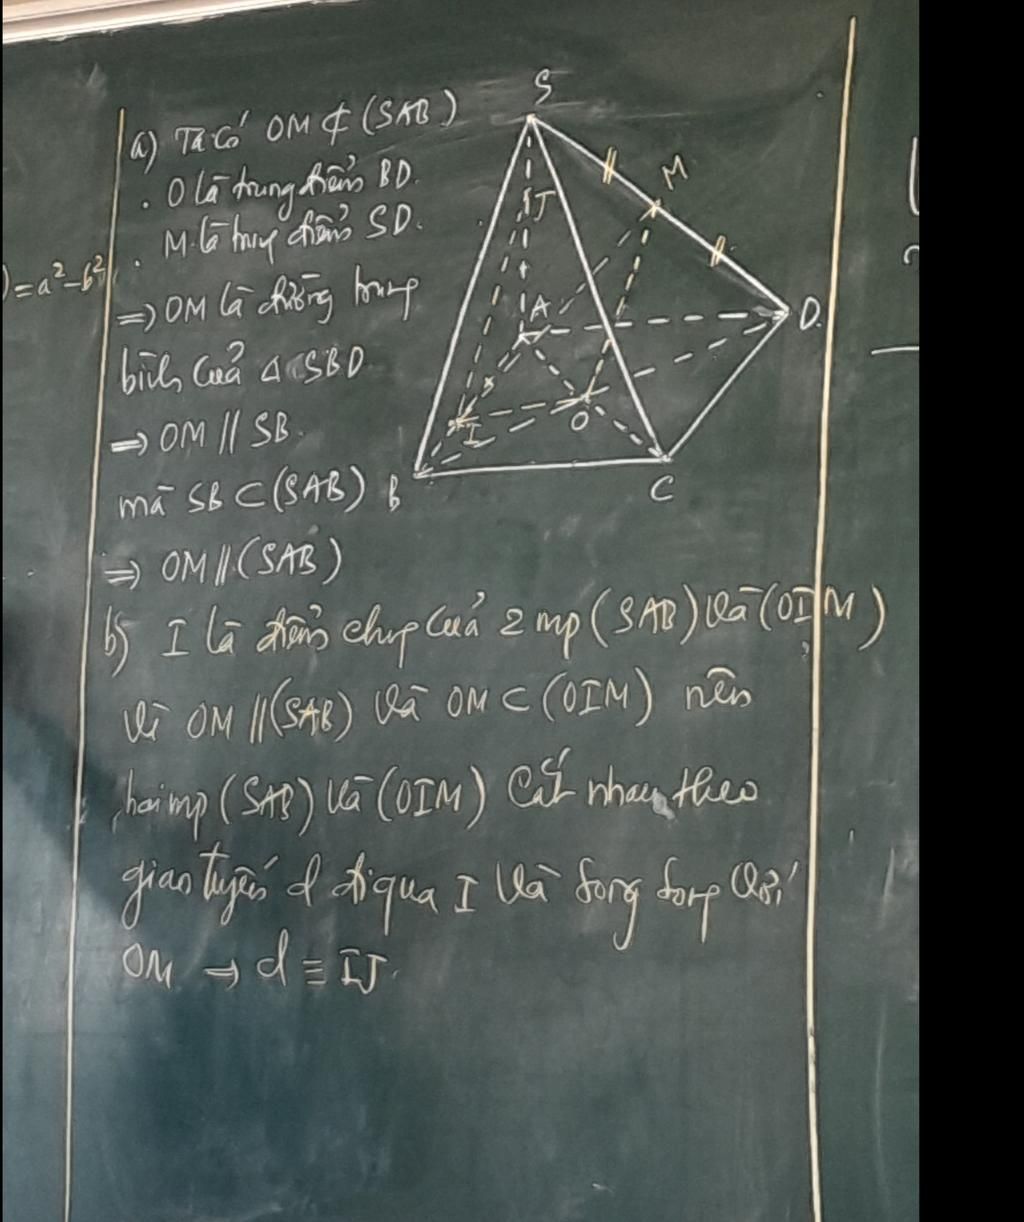 a) Ta có OM ⊄ (SAB)
. O là trung điểm BD.
. M là trung điểm SD.
)=a²-b²
=> OM là đường trung
bình của Δ SBD
=> OM // SB.
mà SB ⊂ (SAB)
=> OM // (SAB)
S
M
J
A
D.
I
O
B
C
b) I là điểm chung của 2 mp (SAB) và (OIM)
Vì OM // (SAB) và OM ⊂ (OIM) nên
hai mp (SAB) và (OIM) cắt nhau theo
giao tuyến d đi qua I và song song với
OM → d ≡ IJ.